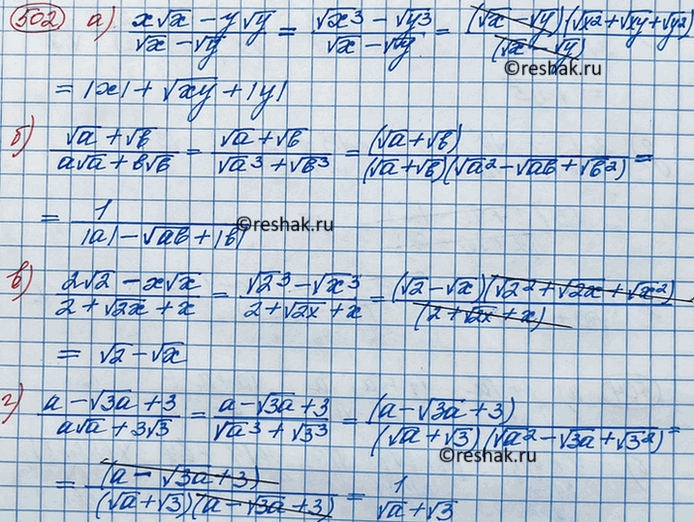 502 а) (x√x − y√y)/(√x − √y) = (√x³ − √y³)/(√x − √y) = ((√x − √y)(√x² + √xy + √y²))/((√x − √y))
©reshak.ru
= |x| + √xy + |y|
б) (√a + √b)/(a√a + b√b) = (√a + √b)/(√a³ + √b³) = ((√a + √b))/((√a + √b)(√a² − √ab + √b²)) =
= 1/(|a| − √ab + |b|)
©reshak.ru
в) (2√2 − x√x)/(2 + √2x + x) = (√2³ − √x³)/(2 + √2x + x) = ((√2 − √x)(√2² + √2x + √x²))/((2 + √2x + x))
= √2 − √x
г) (a − √3a + 3)/(a√a + 3√3) = (a − √3a + 3)/(√a³ + √3³) = ((a − √3a + 3))/((√a + √3)(√a² − √3a + √3²)) =
©reshak.ru
= ((a − √3a + 3))/((√a + √3)(a − √3a + 3)) = 1/(√a + √3)